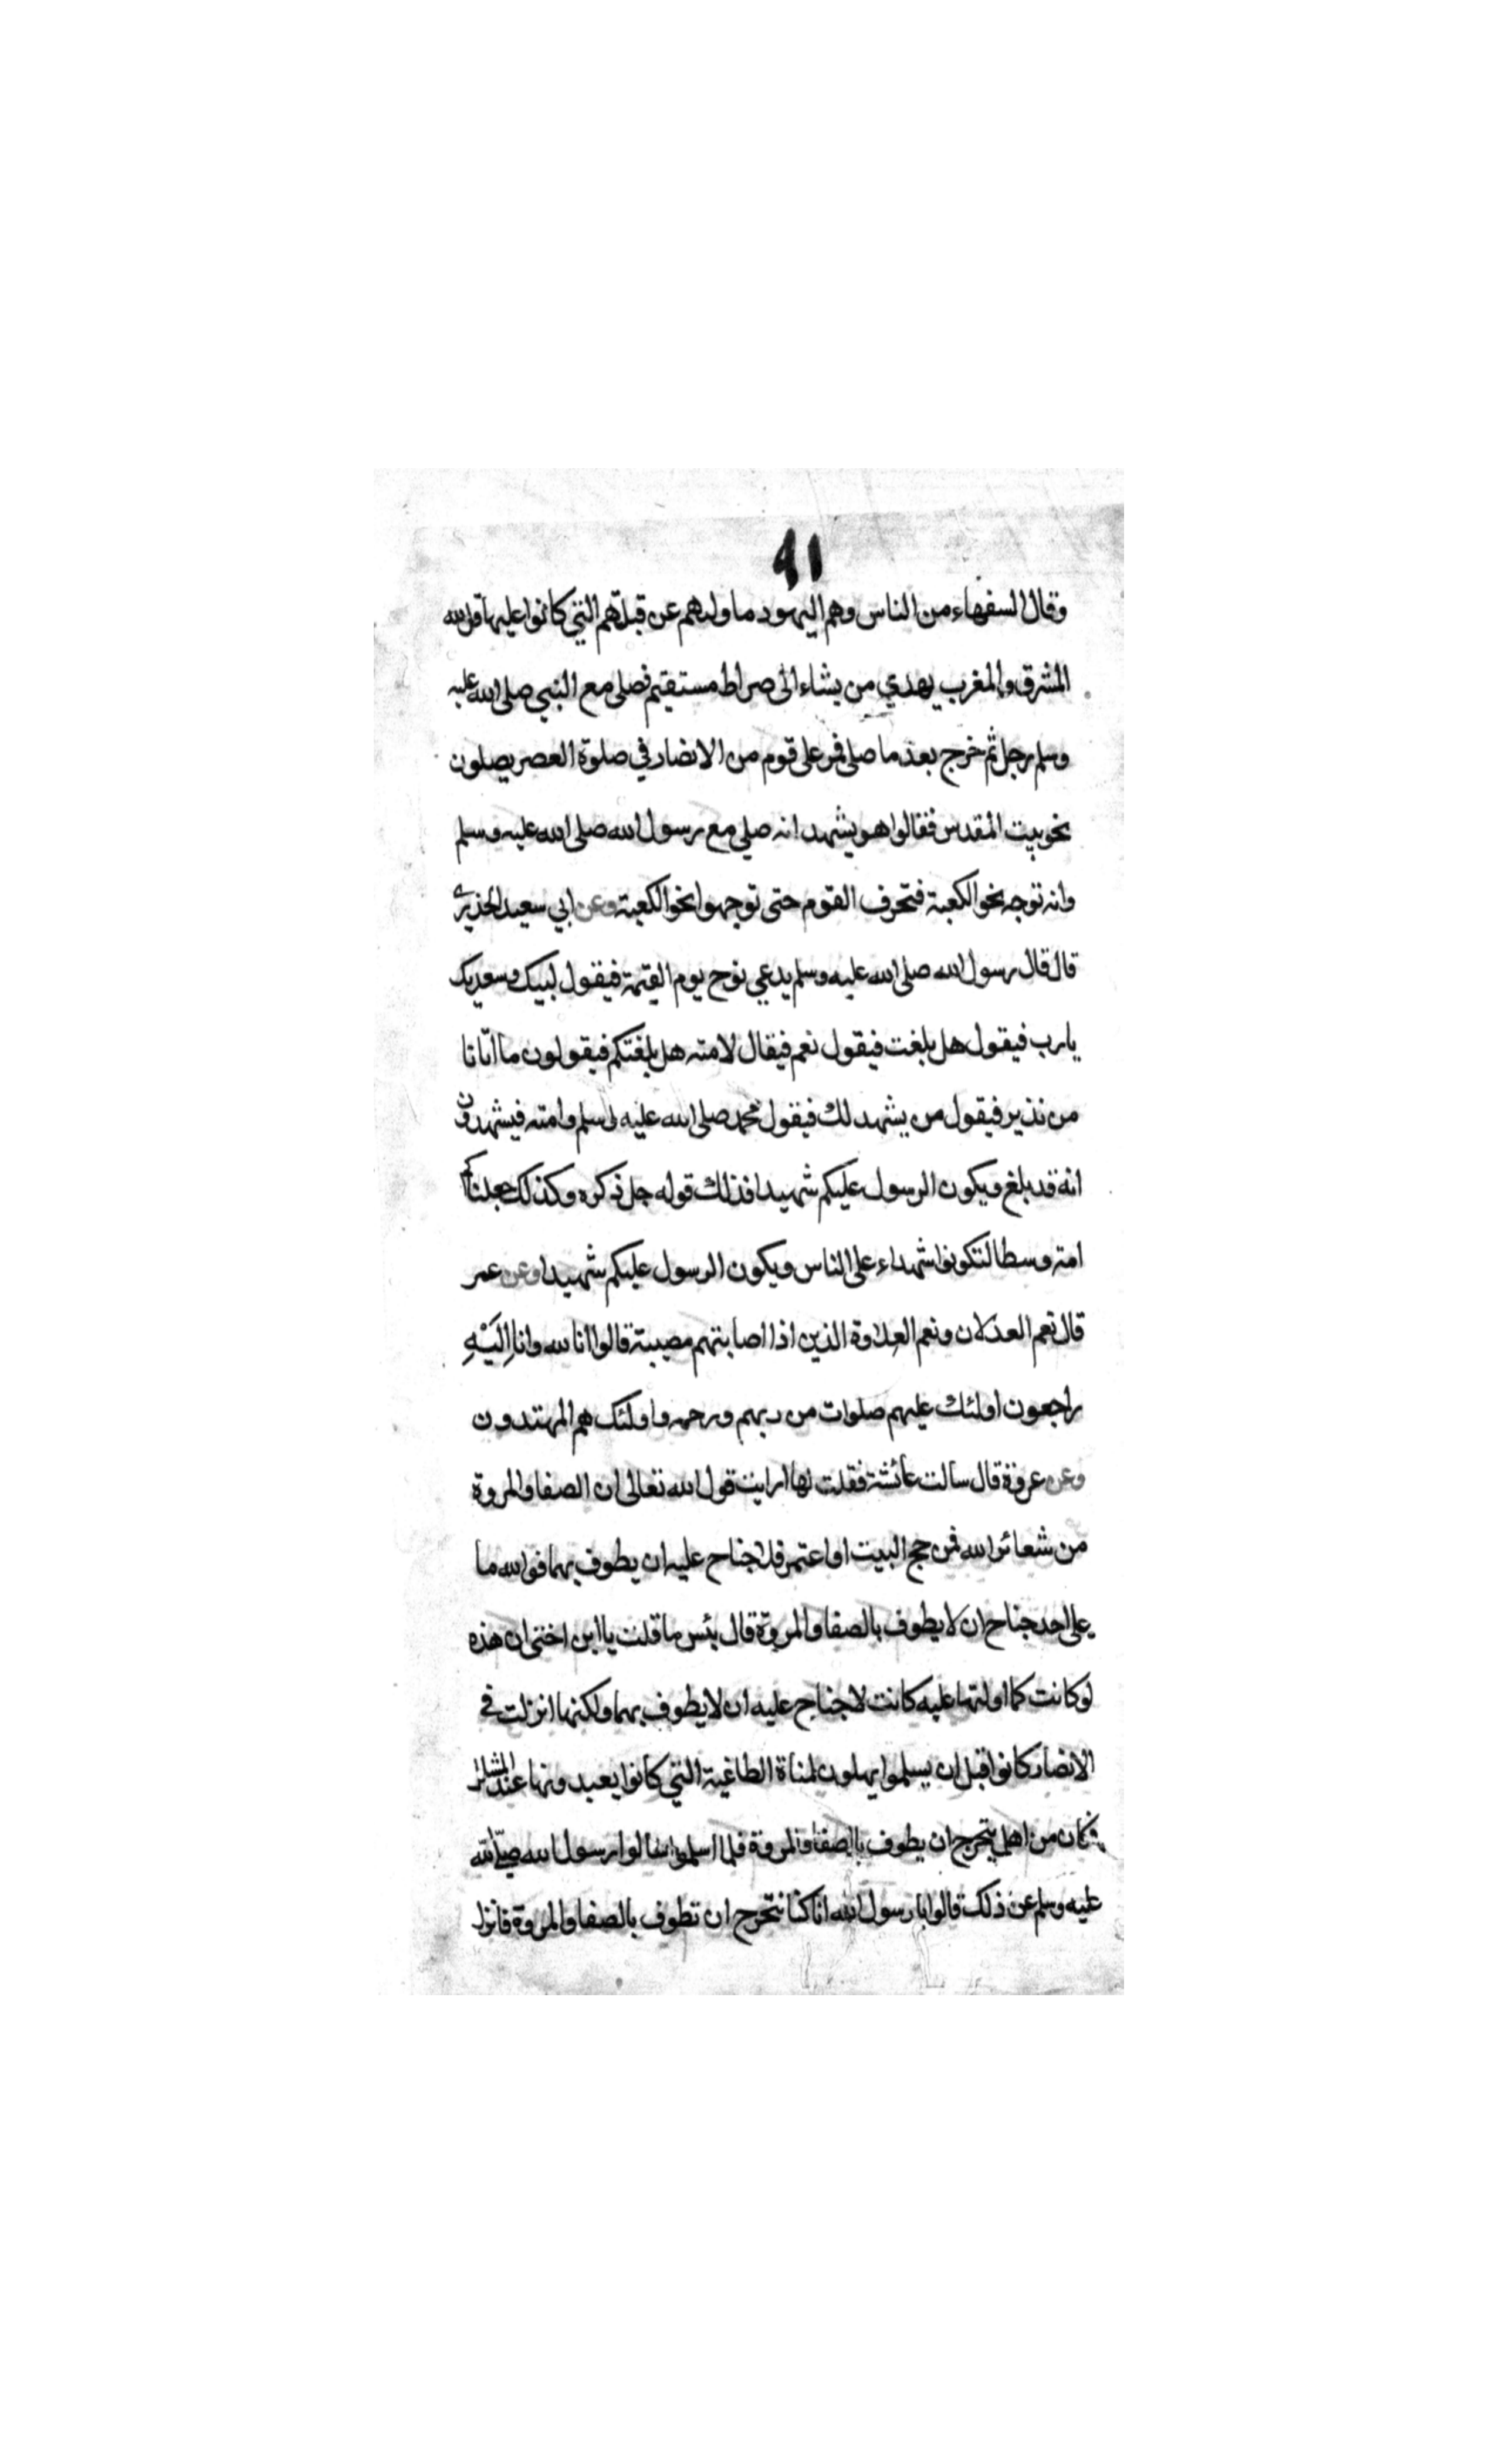 ٩١
وقال السفهاء من الناس وهم اليهود ما ولدهم عن قبلتهم التي كانوا عليها قل لله
المشرق والمغرب يهدي من يشاء الى صراط مستقيم فصلى مع النبي صلى الله عليه
وسلم رجل ثم خرج بعد ما صلى فمر على قوم من الانصار في صلوة العصر يصلون
نحو بيت المقدس فقالوا هو يشهد انه صلي مع رسول الله صلى الله عليه وسلم
وانه توجه نحو الكعبة فتحرف القوم حتى توجهوا نحو الكعبة وعن ابي سعيد الخدري
قال قال رسول الله صلى الله عليه وسلم يدعي نوح يوم القيمة فيقول لبيك وسعديك
يارب فيقول هل بلغت فيقول نعم فيقال لامته هل بلغتكم فيقولون ما اتانا
من نذير فيقول من يشهد لك فيقول محمد صلى الله عليه وسلم وامته فيشهدون
انه قد بلغ ويكون الرسول عليكم شهيدا فذلك قوله جل ذكره وكذلك جعلناكم
امة وسطا لتكونوا شهداء على الناس ويكون الرسول عليكم شهيدا وعن عمر
قال نعم العدلان ونعم العلاوة الذين اذا اصابتهم مصيبة قالوا انا لله وانا اِلَيْهِ
راجعون اولئك عليهم صلوات من ربهم ورحمة واولئك هم المهتدون
وعن عروة قال سالت عائشة فقلت لها ارايت قول الله تعالى ان الصفا والمروة
من شعائر الله فمن حج البيت او اعتمر فلا جناح عليه ان يطوف بهما فوالله ما
على احد جناح ان لا يطوف بالصفا والمروة قال بئس ما قلت يا ابن اختى ان هذه
لو كانت كما اولتها عليه كانت لا جناح عليه ان لا يطوف بهما ولكنها انزلت في
الانصار كانوا قبل ان يسلموا يهلون لمناة الطاغية التي كانوا يعبدونها عند المشلل
فكان من اهل يتحرج ان يطوف بالصفا والمروة فلما اسلموا سالوا رسول الله صلى الله
عليه وسلم عن ذلك قالوا يا رسول الله انا كنا نتحرج ان نطوف بالصفا والمروة فانزل